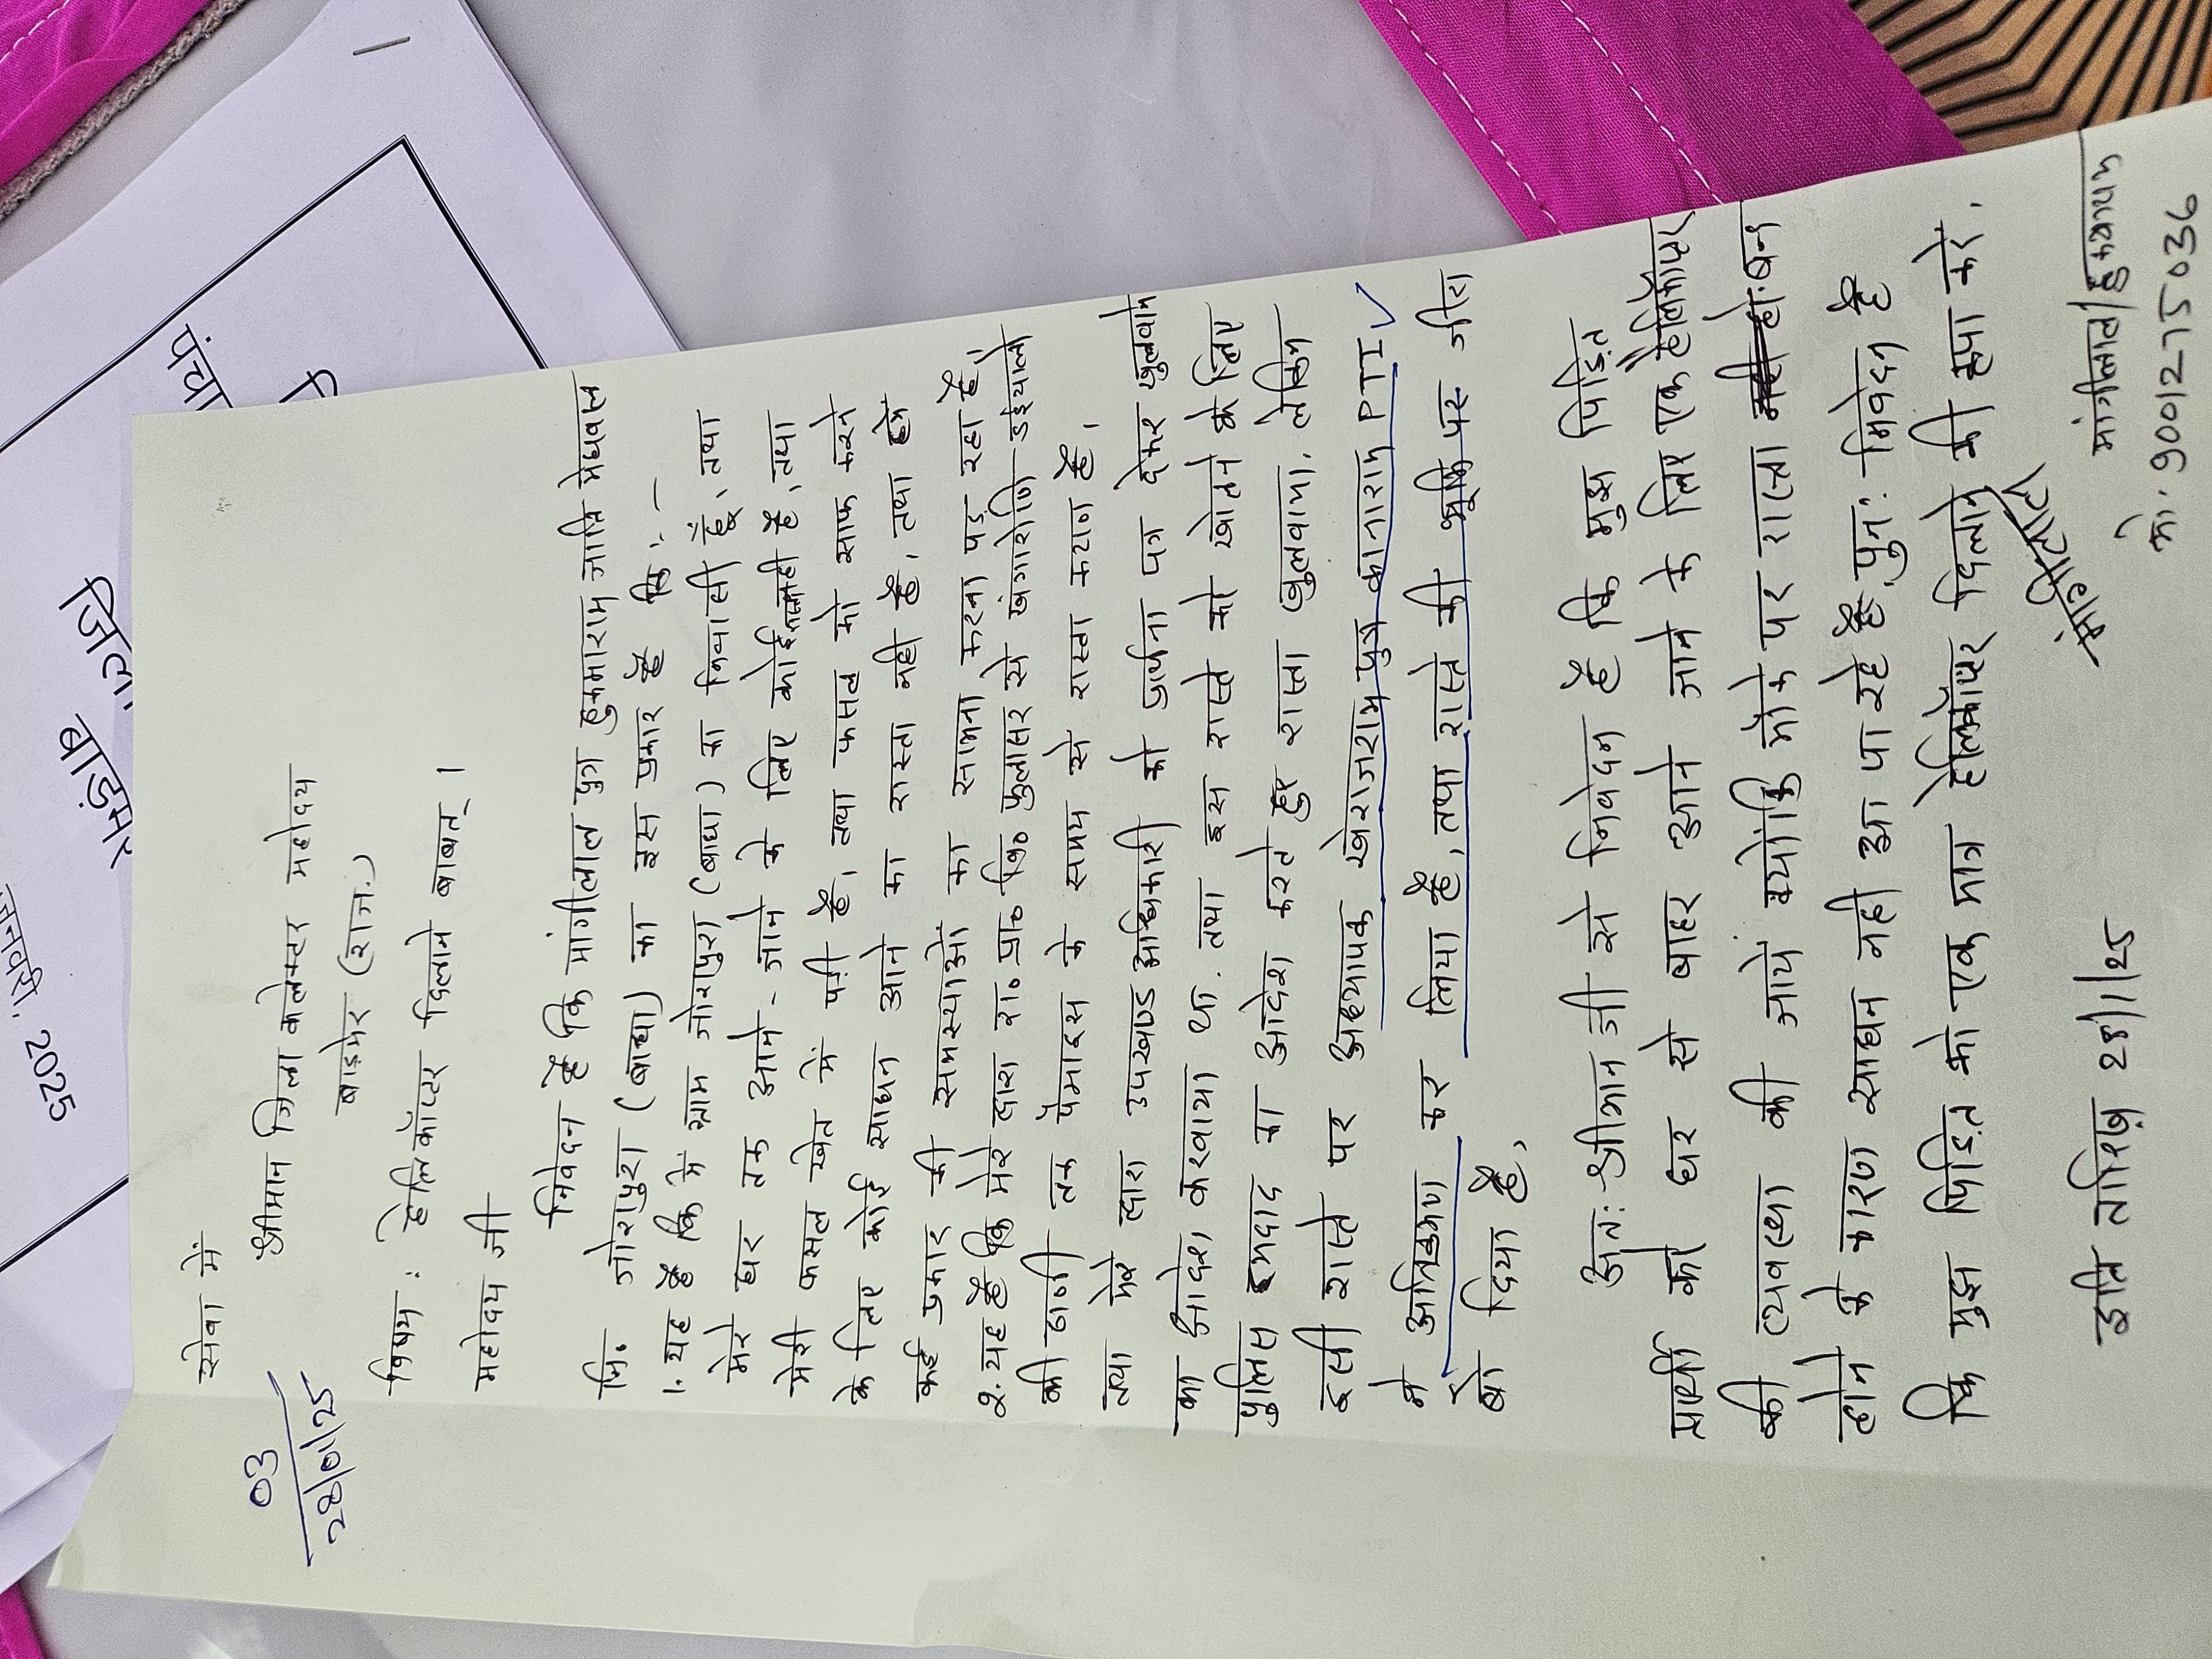 जनवरी, 2025
जिला
बाड़मेर
सेवा में
03
28/01/25
श्रीमान जिला कलेक्टर महोदय
बाड़मेर (राज.)
विषय : हेलिकॉप्टर दिलाने बाबत् ।
महोदय जी
निवेदन है कि मांगीलाल पुत्र हुकमाराम जाति मेघवाल
नि॰ जोरापुरा (बाघा) का इस प्रकार है कि :-
1. यह है कि में ग्राम जोरापुरा (बाघा) का निवासी हूँ, तथा
मेरे घर तक आने - जाने के लिए कोई रास्ता नही है, तथा
मेरी फसल खेत में पड़ी है, तथा फसल को साफ करने
के लिए कोई साधन आने का रास्ता नही है, तथा हमे
कई प्रकार की समस्याओं का सामना करना पड़ रहा है,
2. यह है कि मेरे द्वारा रा॰ प्रा॰ वि॰ फुलासर से खंगारोणि डईयालो
की ढाणी तक पैमाइस के समय से रास्ता कटाण है,
तथा मेरे द्वारा उपखण्ड अधिकारी को प्रार्थना पत्र देकर खुलवाने
का आदेश करवाया था. तथा इस रास्ते को खोलने के लिए
पुलिस इमदाद का आदेश करते हुए रास्ता खुलवाया, लेकिन
इसी रास्ते पर अध्यापक खेराजराम पुत्र कानाराम PTI
ने अतिक्रमण कर लिया है, तथा रास्ते की भूमि पर जीरा
बो दिया है,
अत: श्रीमान जी से निवेदन है कि मुझ पिड़ित
प्रार्थी को घर से बाहर आने जाने के लिए एक हैलिकॉप्टर
की व्यवस्था की जायें क्योंकि मौके पर रास्ता बन्द
होने के कारण साधन नही आ पा रहे है, पुन: निवेदन है
कि मुझ पिड़ित को एक मात्र हेलिकॉप्टर दिलाने की कृपा करें.
इति तारिख़ 28/1/25
मांगीलाल
मांगीलाल/हुकमाराम
मो. 9001275036